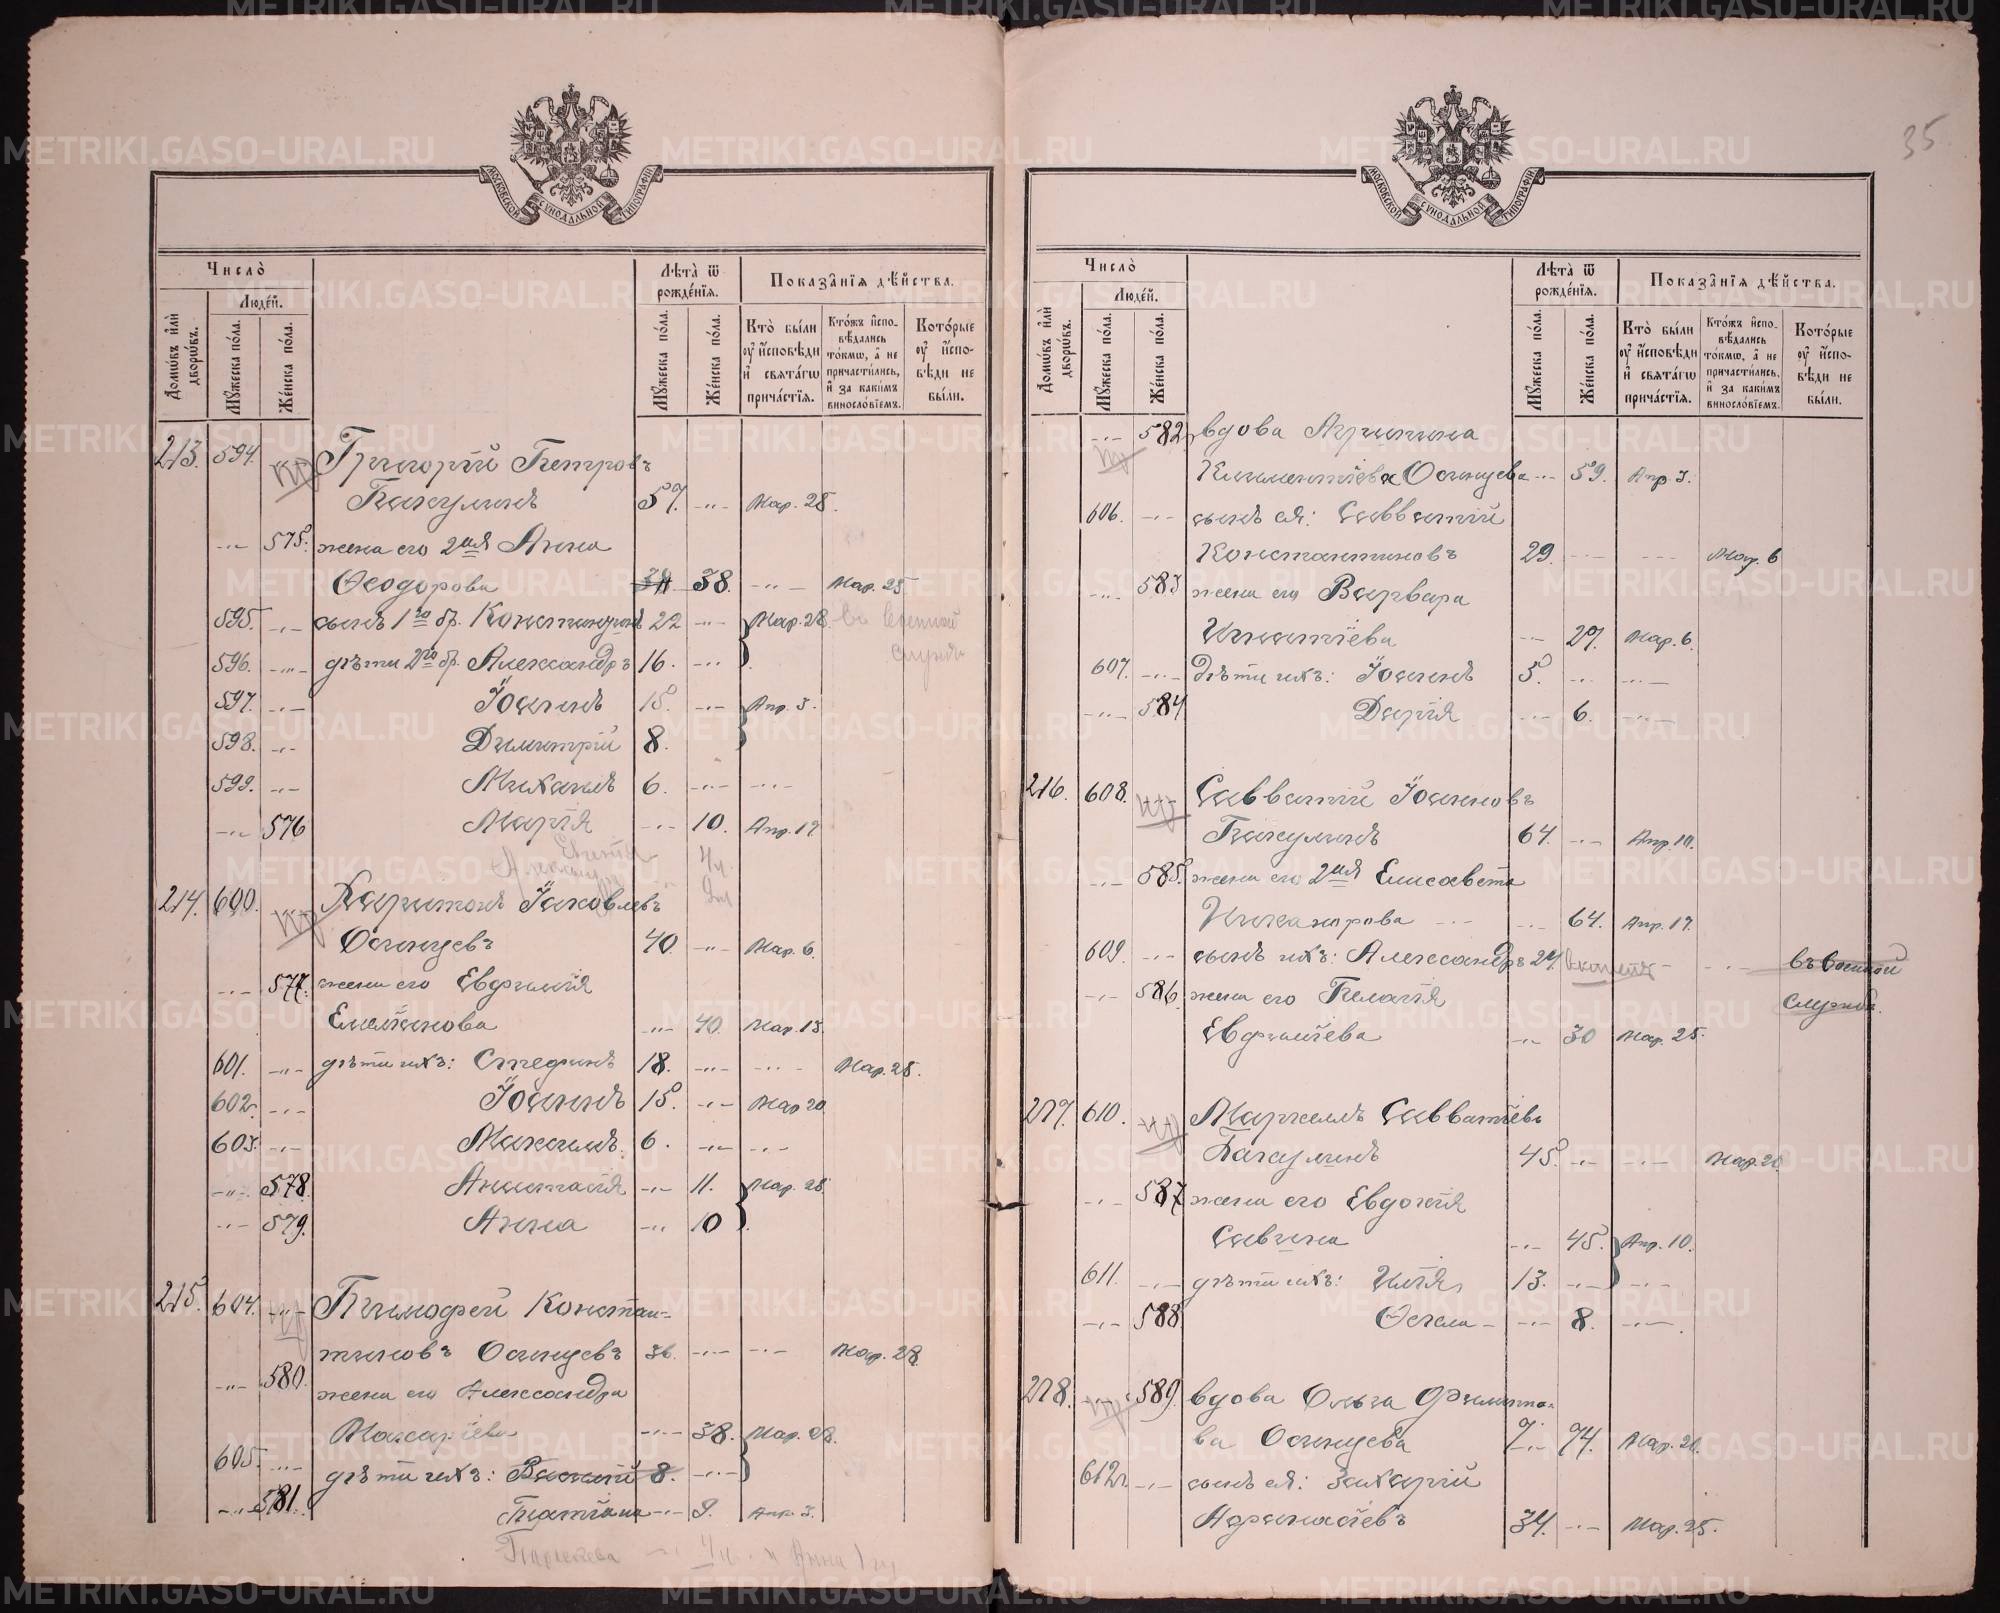 35
МОСКОВСКОЙ СѴНОДАЛЬНОЙ ТИПОГРАФІИ
Число̀
Люде́й.
Домѡ́въ и҆лѝ дворѡ́въ.
Мꙋ́жеска по́ла.
Же́нска по́ла.
Лѣ́та ѿ рожде́нїѧ.
Мꙋ́жеска по́ла.
Же́нска по́ла.
Показа̑нїѧ дѣ́йства.
Кто̀ бы́ли ᲂу҆ и҆́сповѣди и҆ свѧта́гѡ прича́стїѧ.
Кто́жъ и҆спо-вѣ́дались то́кмѡ, а҆ не причасти́лись, и҆ за каки́мъ виносло́вїемъ.
Кото́рые ᲂу҆ и҆́спо-вѣди не бы́ли.
213. 594. Григорій Петровъ
Бакулинъ 57. -„- Мар. 28.
-„- 575. жена его 2ая Анна
Ѳеодорова 38. -„- Мар. 25
595. -„- сынъ 1го бр. Константинъ 22 -„- Мар. 28. въ военной
службѣ
596. -„- дѣти 2го бр. Александръ 16. -„-
597. -„- Іоаннъ 15. -„- Апр. 3.
598. -„- Димитрій 8.
599. -„- Михаилъ 6. -„- -„-
-„- 576 Марія -„- 10. Апр. 17.
214. 600. Харитонъ Іаковлевъ
Осинцевъ 40. -„- Мар. 6.
-„- 577. жена его Евфимія
Емельянова -„- 40. Мар. 13.
601. -„- дѣти ихъ: Стефанъ 18. -„- -„- Мар. 25.
602. -„- Іоаннъ 15. -„- Мар 20.
603. -„- Михаилъ. 6. -„- -„-
-„- 578. Анастасія -„- 11. Мар. 28.
-„- 579. Анна -„- 10
215. 604. -„- Тимофей Констан-
тиновъ Осинцевъ 36. -„- -„- Мар. 28.
-„- 580. жена его Александра
Макаріева -„- 38. Мар. 28.
605. -„- дѣти ихъ: Василій 8. -„-
-„- 581. Татіана -„- 9. Апр. 3.
Число̀
Люде́й.
Домѡ́въ и҆лѝ дворѡ́въ.
Мꙋ́жеска по́ла.
Же́нска по́ла.
Лѣ́та ѿ рожде́нїѧ.
Мꙋ́жеска по́ла.
Же́нска по́ла.
Показа̑нїѧ дѣ́йства.
Кто̀ бы́ли ᲂу҆ и҆́сповѣди и҆ свѧта́гѡ прича́стїѧ.
Кто́жъ и҆спо-вѣ́дались то́кмѡ, а҆ не причасти́лись, и҆ за каки́мъ виносло́вїемъ.
Кото́рые ᲂу҆ и҆́спо-вѣди не бы́ли.
-„- 582. вдова Агрипина
Климентіева Осинцева -„- 59. Апр. 3.
606. -„- сынъ ея: Савватій
Константиновъ 29. -„- -„- Мар. 6
-„- 583 жена его Варвара
Игнатіева -„- 27. Мар. 6.
607. -„- Дѣти ихъ: Іоаннъ 5. -„- -„-
-„- 584 Дарія -„- 6. -„-
216. 608. Савватій Іоанновъ
Бакулинъ 64. -„- Апр. 10.
-„- 585. жена его 2ая Елисавета
Никанорова -„- 64. Апр. 17.
609. -„- сынъ ихъ: Александръ 27. -„- въ военной
службѣ.
-„- 586 жена его Пелагія
Евфиміева -„- 30 Мар. 25.
217. 610. Маркелъ Савватіевъ
Бакулинъ 45. -„- -„- Мар. 20
-„- 587 жена его Евдокія
Саввина -„- 45. Апр. 10.
611. -„- дѣти ихъ: Илія 13. -„- -„-
-„- 588. Ѳекла -„- 8. -„-
218. -„- 589. вдова Ольга Филимо-
ва Осинцева -„- 74. Мар. 20.
612. -„- сынъ ея: Захарій
Аѳанасіевъ 34. -„- Мар. 25.
METRIKI.GASO-URAL.RU